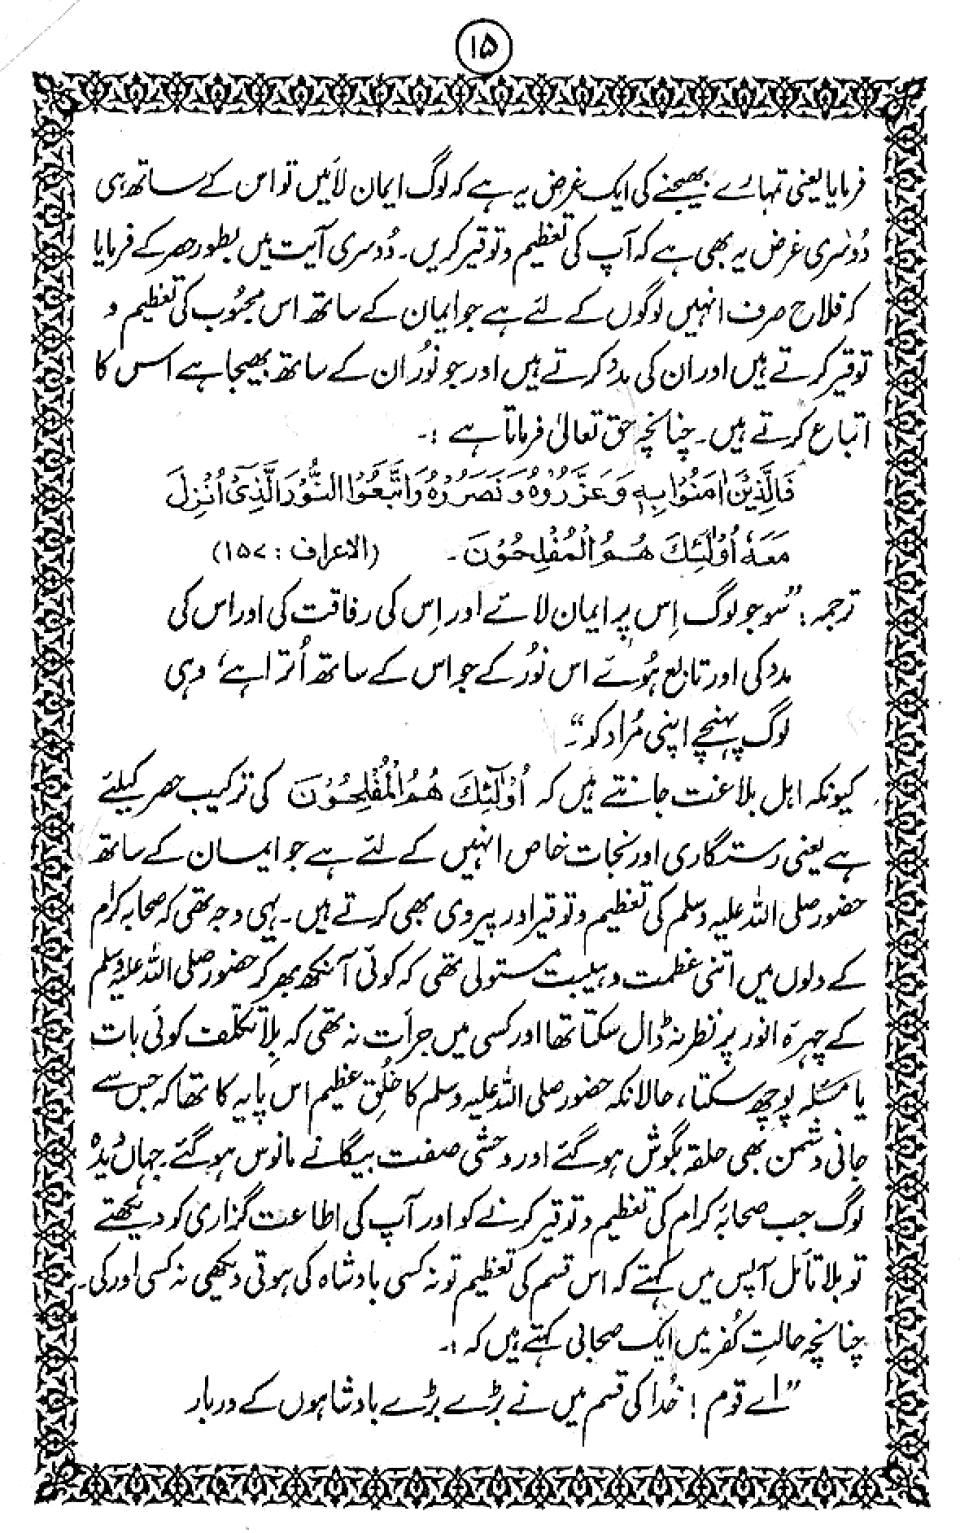 ۱۵
فرمایا یعنی تمہارے بھیجنے کی ایک غرض یہ ہے کہ لوگ ایمان لائیں تو اس کے ساتھ ہی
دُوسری غرض یہ بھی ہے کہ آپ کی تعظیم و توقیر کریں۔ دُوسری آیت میں بطور حصر کے فرمایا
کہ فلاح صرف انہیں لوگوں کے لئے ہے جو ایمان کے ساتھ اس محبُوب کی تعظیم و
توقیر کرتے ہیں اور ان کی مدد کرتے ہیں اور جو نوُر ان کے ساتھ بھیجا ہے اس کا
اتباع کرتے ہیں۔ چنانچہ حق تعالیٰ فرماتا ہے :۔
فَالَّذِیْنَ اٰمَنُوْا بِهٖ وَعَزَّرُوْهُ وَنَصَرُوْهُ وَاتَّبَعُوا النُّوْرَ الَّذِیْ اُنْزِلَ
مَعَهٗ اُولٰٓئِكَ هُمُ الْمُفْلِحُوْنَ۔ (الاعراف : ۱۵۷)
ترجمہ : ”سو جو لوگ اِس پر ایمان لائے اور اِس کی رفاقت کی اور اس کی
مدد کی اور تابع ہُوئے اس نوُر کے جو اس کے ساتھ اُترا ہے، وہی
لوگ پہنچے اپنی مُراد کو“۔
کیونکہ اہل بلاغت جانتے ہیں کہ اُوْلٰٓئِكَ هُمُ الْمُفْلِحُوْنَ کی ترکیب حصر کیلئے
ہے یعنی رستگاری اور نجات خاص انہیں کے لئے ہے جو ایمان کے ساتھ
حضور صلی اللہ علیہ وسلم کی تعظیم و توقیر اور پیروی بھی کرتے ہیں۔ یہی وجہ تھی کہ صحابہ کرام
کے دلوں میں اتنی عظمت و ہیبت مستولی تھی کہ کوئی آنکھ بھر کر حضور صلی اللہ علیہ وسلم
کے چہرہ انور پر نظر نہ ڈال سکتا تھا اور کسی میں جرأت نہ تھی کہ بلا تکلف کوئی بات
یا مسئلہ پوچھ سکتا، حالانکہ حضور صلی اللہ علیہ وسلم کا خُلقِ عظیم اس پایہ کا تھا کہ جس سے
جانی دشمن بھی حلقہ بگوش ہو گئے اور وحشی صفت بیگانے مانوس ہو گئے۔ جہاں دیدہ
لوگ جب صحابہ کرام کی تعظیم و توقیر کرنے کو اور آپ کی اطاعت گذاری کو دیکھتے
تو بلا تأمل آپس میں کہتے کہ اس قسم کی تعظیم تو نہ کسی بادشاہ کی ہوتی دیکھی نہ کسی اور کی۔
چنانچہ حالتِ کُفر میں ایک صحابی کہتے ہیں کہ :۔
”اے قوم ! خُدا کی قسم میں نے بڑے بڑے بادشاہوں کے دربار